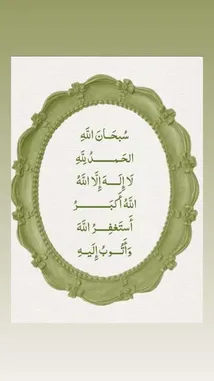 سُبْحَانَ اللَّهِ
الحَمْـدُ لِلَّهِ
لَا إِلَـٰهَ إِلَّا اللَّهُ
اللَّهُ أَكْبَـــرُ
أَسْتَغْفِـرُ اللَّهَ
وَأَتُـوبُ إِلَيْـهِ